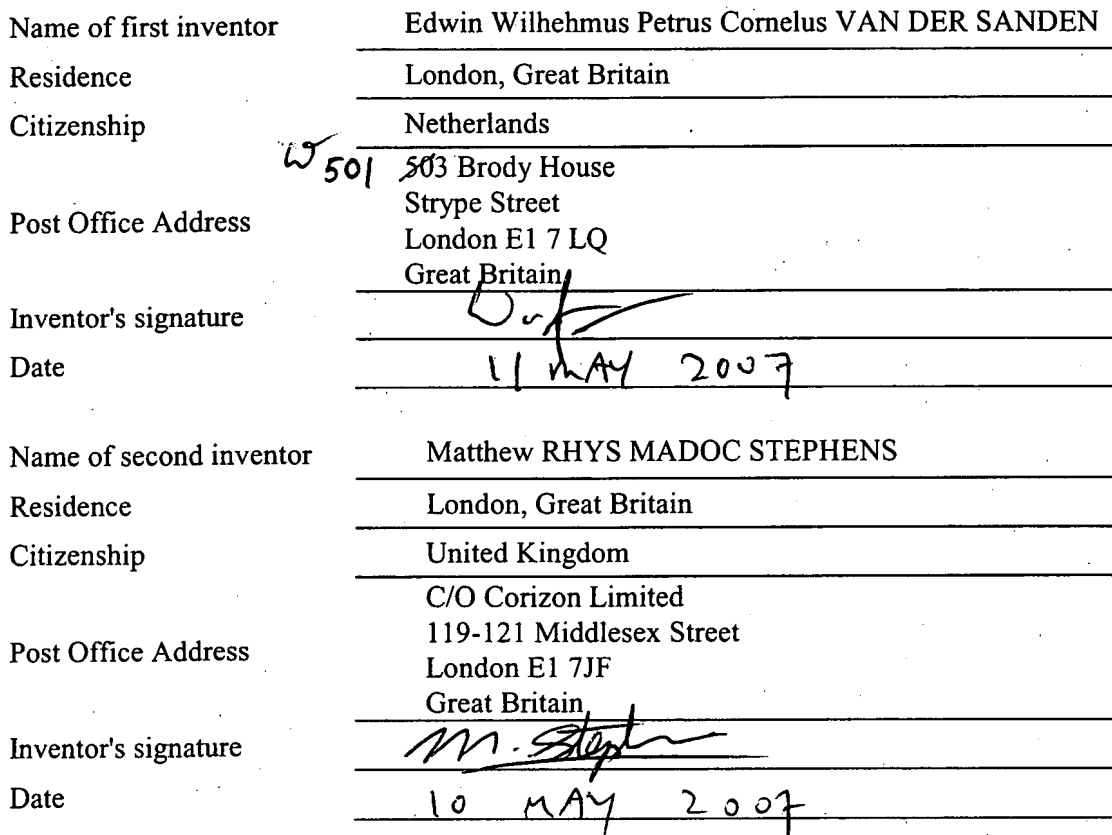 Name of first inventor Edwin Wilhehmus Petrus Cornelus VAN DER SANDEN
Residence London, Great Britain
Citizenship Netherlands
W 501 503 Brody House
Strype Street
Post Office Address
London E1 7 LQ
Great Britain
Inventor's signature
Date 11 MAY 2007
Name of second inventor Matthew RHYS MADOC STEPHENS
Residence London, Great Britain
Citizenship United Kingdom
C/O Corizon Limited
119-121 Middlesex Street
Post Office Address
London E1 7JF
Great Britain
Inventor's signature M. Steph
Date 10 MAY 2007